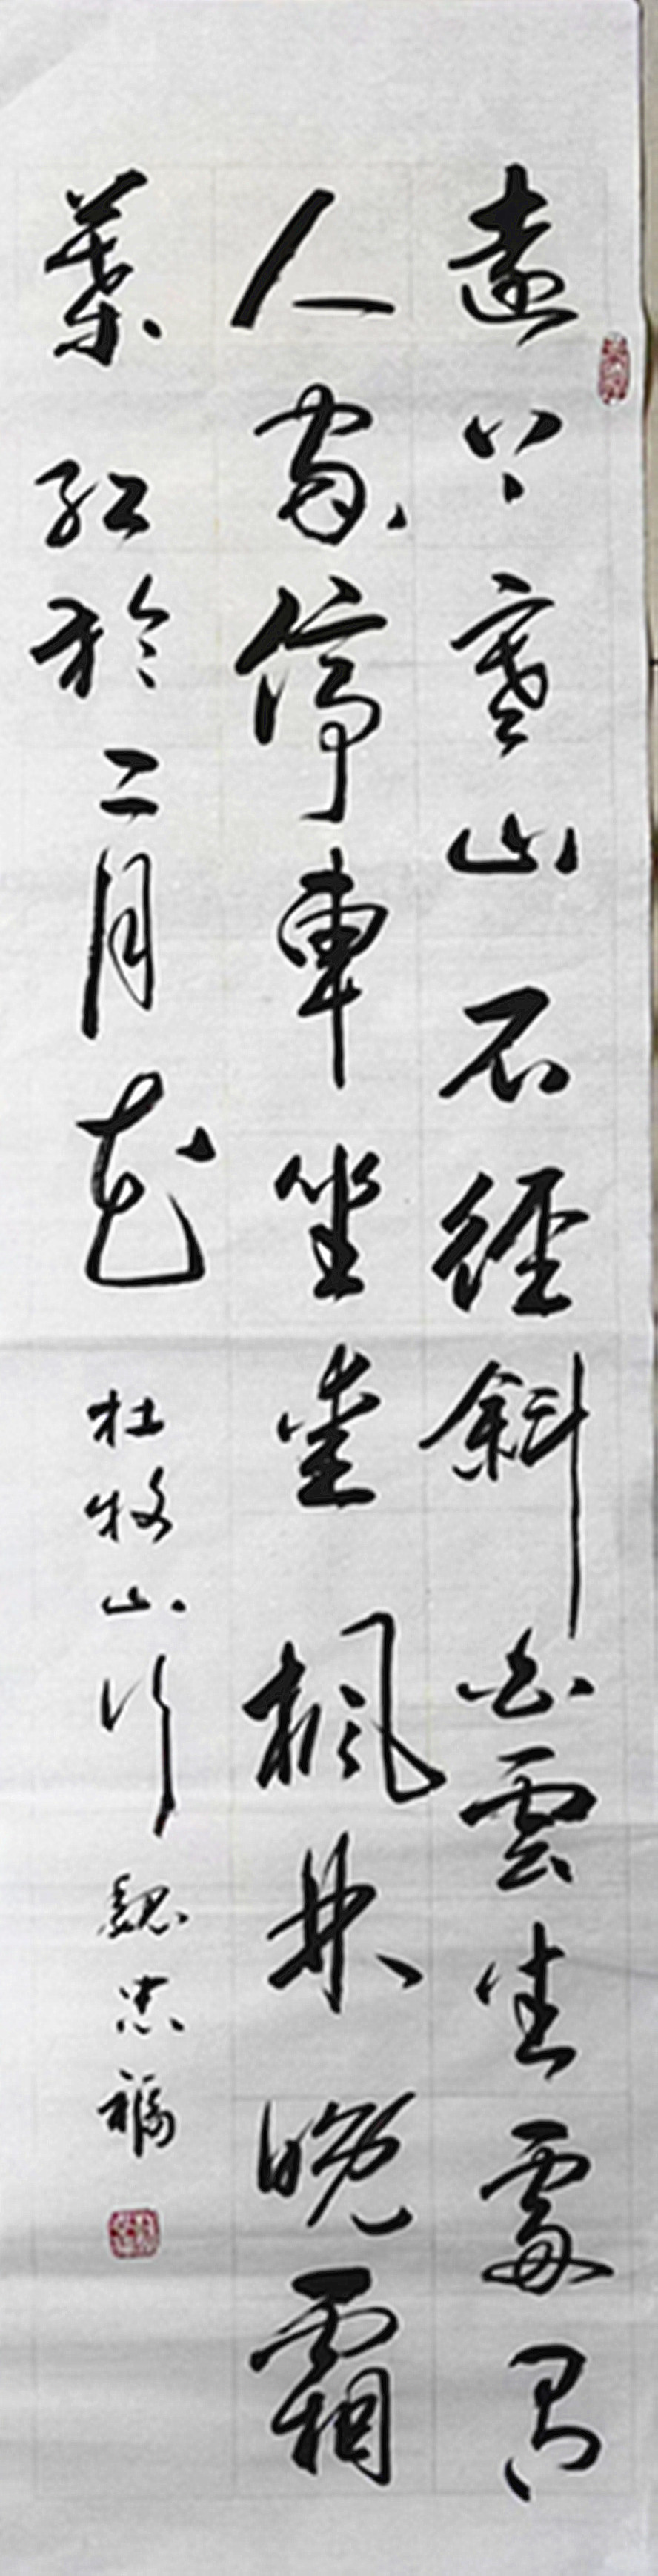 遠上寒山石徑斜白雲生處有
人家停車坐愛楓林晚霜
葉紅於二月花 杜牧山行 魏忠福